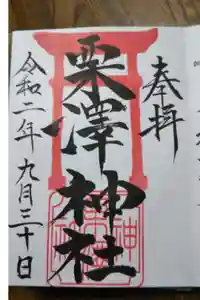 奉拝
栗澤神社
令和二年九月三十日